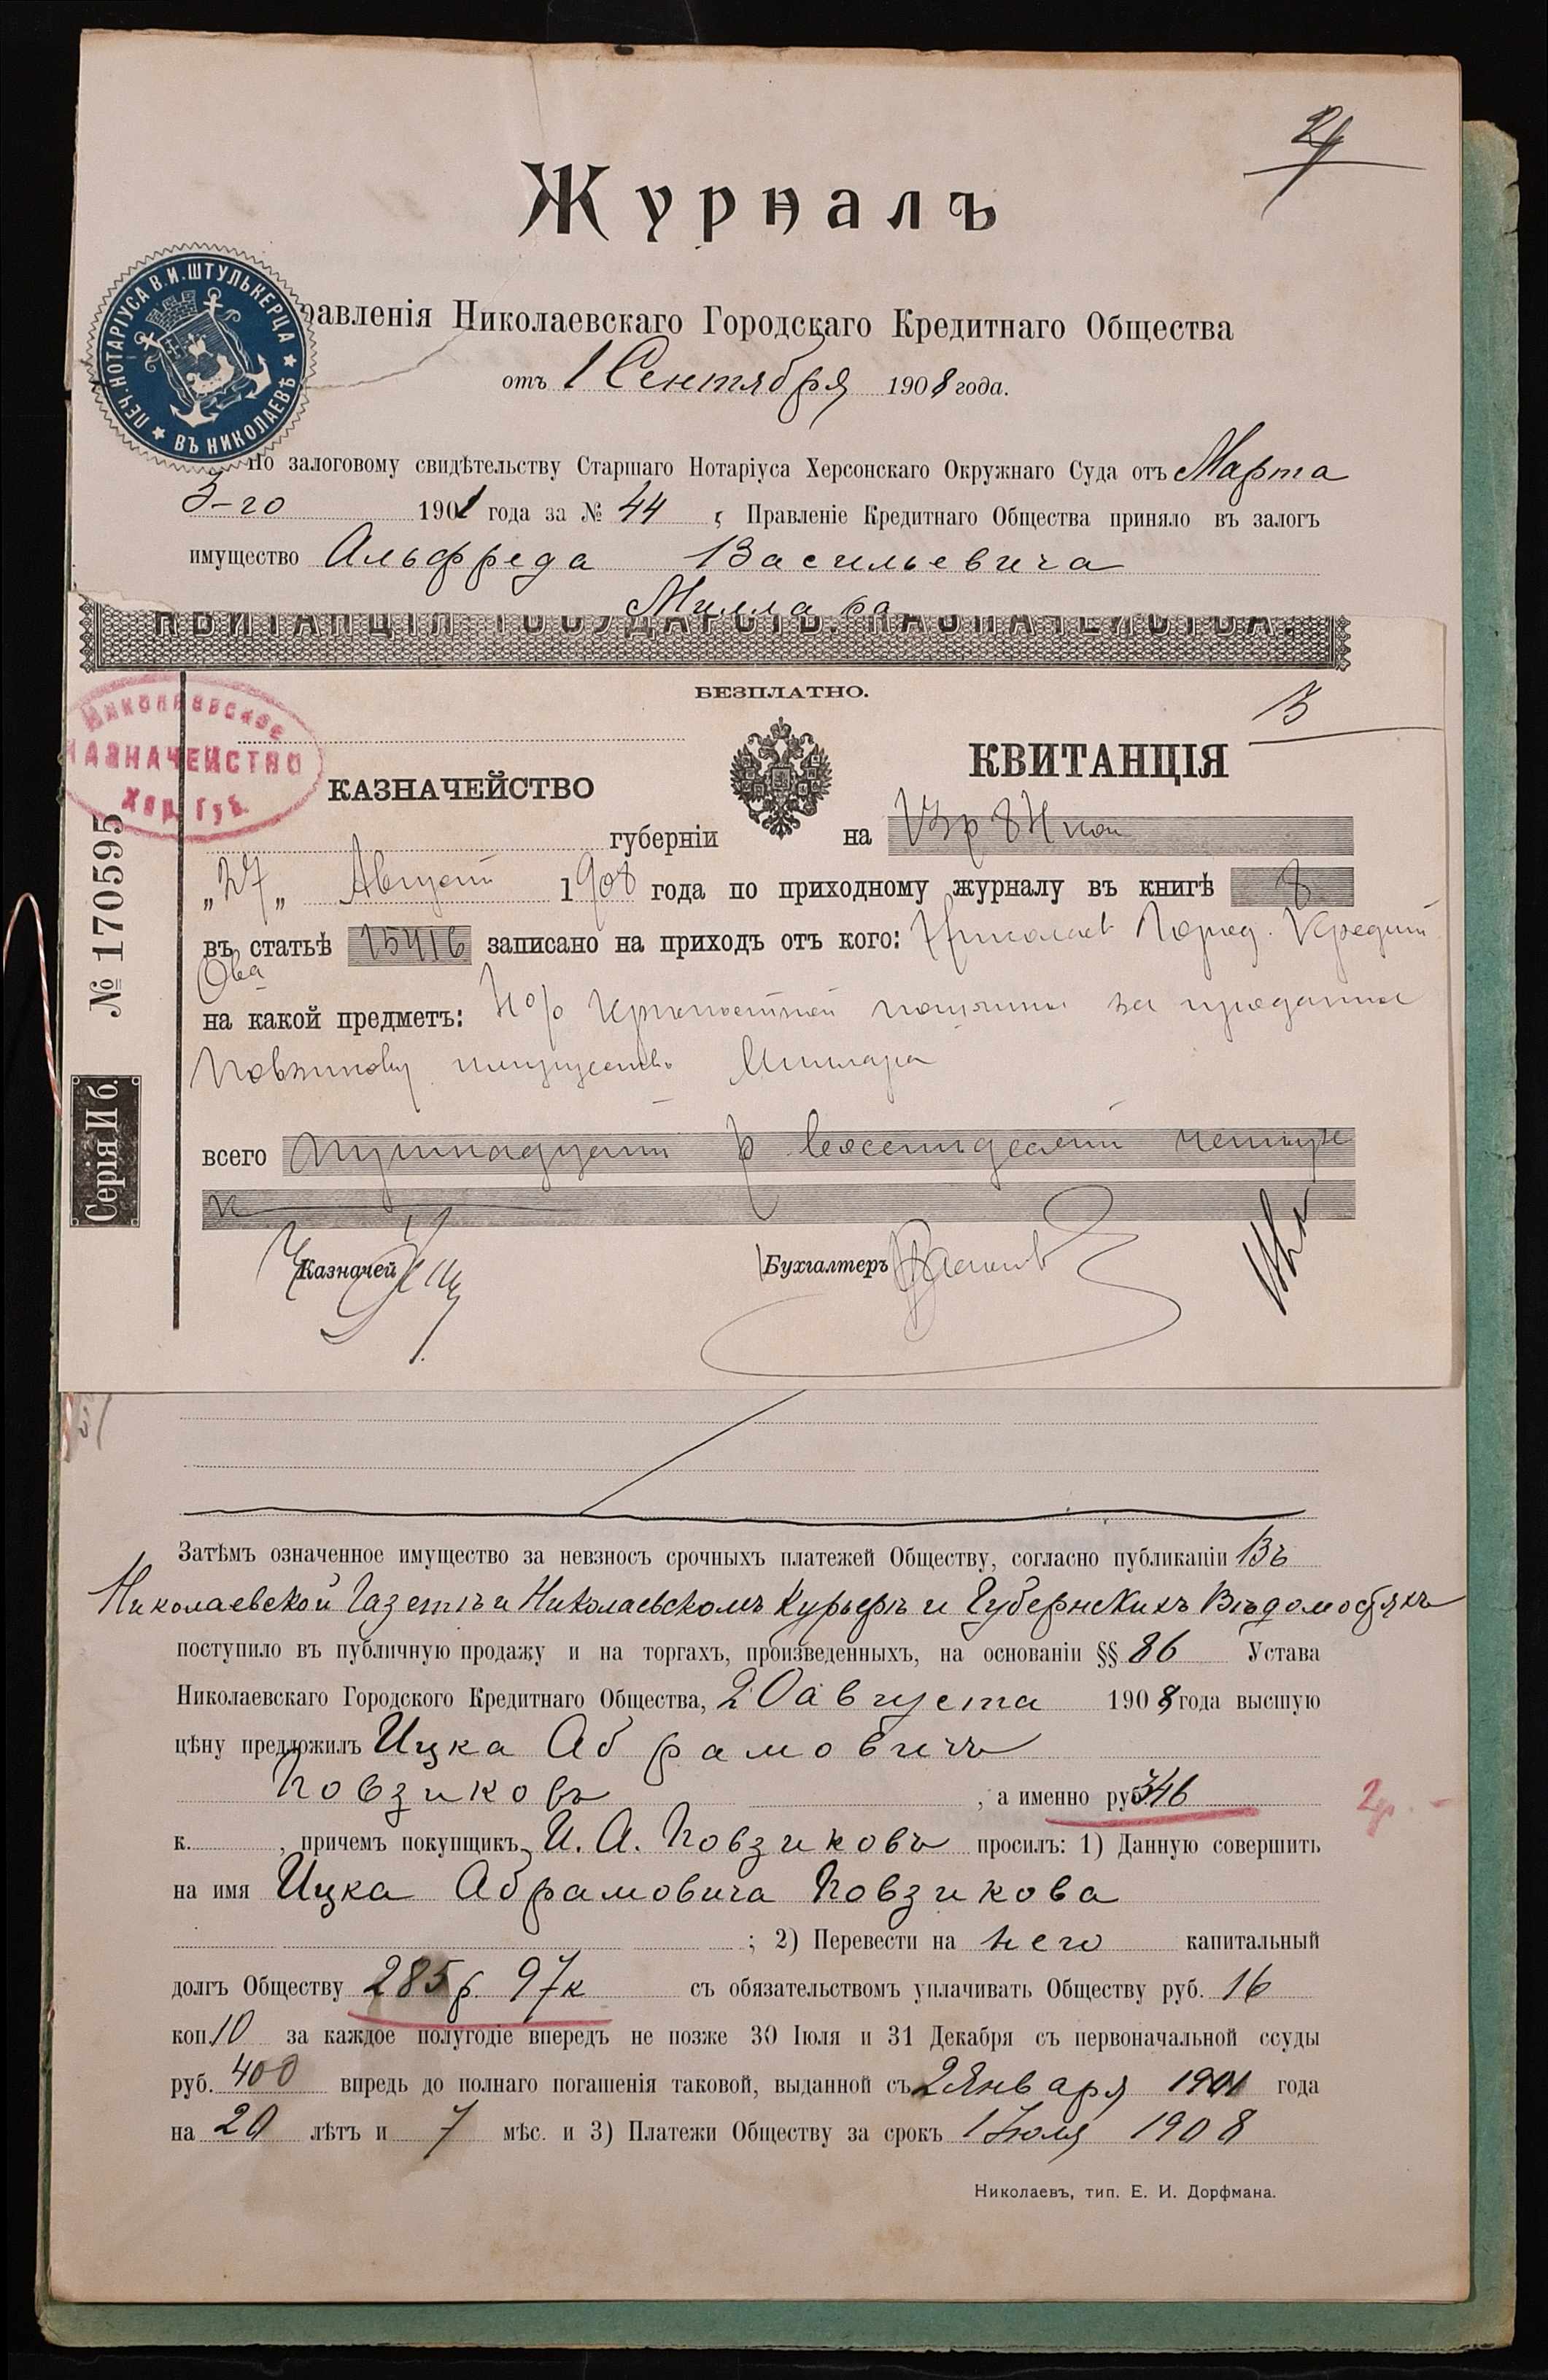 24
Журналъ
равленія Николаевскаго Городскаго Кредитнаго Общества
отъ 1 Сентября 1908 года.
ПЕЧ. НОТАРІУСА В. И. ШТУЛЬКЕРЦА ВЪ НИКОЛАЕВѢ
По залоговому свидѣтельству Старшаго Нотаріуса Херсонскаго Окружнаго Суда отъ Марта
5-го 1901 года за № 44 , Правленіе Кредитнаго Общества приняло въ залогъ
имущество Альфреда Васильевича
Миллара
КВИТАНЦІЯ ГОСУДАРСТВ. КАЗНАЧЕЙСТВА.
БЕЗПЛАТНО.
НИКОЛАЕВСКОЕ
КАЗНАЧЕЙСТВО
Хер. Губ.
КАЗНАЧЕЙСТВО
КВИТАНЦІЯ
губерніи на 13 р 84 коп
„27„ Август 1908 года по приходному журналу въ книгѣ 8
въ статьѣ 15416 записано на приходъ отъ кого: Николаев Город. Кредит
Ова
на какой предметъ: 4% крѣпостной пошлины за проданное
Повзикову имущество Миллара
всего тринадцать р восемьдесят четыре
к
Казначей
Бухгалтеръ
№ 170595
Серія И б.
Затѣмъ означенное имущество за невзносъ срочныхъ платежей Обществу, согласно публикаціи Въ
Николаевской Газетѣ и Николаевскомъ Курьерѣ и Губернскихъ Вѣдомостяхъ
поступило въ публичную продажу и на торгахъ, произведенныхъ, на основаніи §§ 86 Устава
Николаевскаго Городского Кредитнаго Общества, 20 августа 1908 года высшую
цѣну предложилъ Ицка Абрамовичъ
Повзиковъ , а именно руб. 346
2р. -
к. , причемъ покупщикъ И. А. Повзиковъ просилъ: 1) Данную совершить
на имя Ицка Абрамовича Повзикова
; 2) Перевести на него капитальный
долгъ Обществу 285 р. 97 к съ обязательствомъ уплачивать Обществу руб. 16
коп. 10 за каждое полугодіе впередъ не позже 30 Іюля и 31 Декабря съ первоначальной ссуды
руб. 400 впредь до полнаго погашенія таковой, выданной съ 2 Января 1901 года
на 20 лѣтъ и 7 мѣс. и 3) Платежи Обществу за срокъ 1 Іюля 1908
Николаевъ, тип. Е. И. Дорфмана.